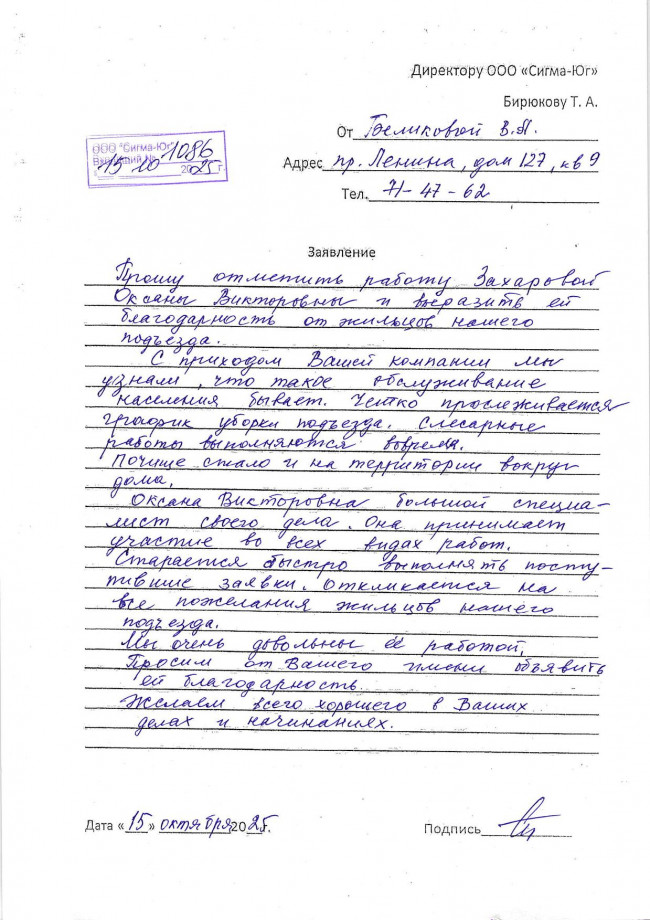 Директору ООО «Сигма-Юг»
Бирюкову Т. А.
От Беликовой В.П.
ООО "Сигма-Юг"
Входящий № 1086
15 10 2025 г.
Адрес пр. Ленина, дом 127, кв 9
Тел. 71-47-62
Заявление
Прошу отметить работу Захаровой
Оксаны Викторовны и выразить ей
благодарность от жильцов нашего
подъезда.
С приходом Вашей компании мы
узнали, что такое обслуживание
населения бывает. Четко прослеживается
график уборки подъезда. Слесарные
работы выполняются вовремя.
Почище стало и на территории вокруг
дома.
Оксана Викторовна большой специа-
лист своего дела. Она принимает
участие во всех видах работ.
Старается быстро выполнять посту-
пившие заявки. Откликается на
все пожелания жильцов нашего
подъезда.
Мы очень довольны её работой.
Просим от Вашего имени объявить
ей благодарность.
Желаем всего хорошего в Ваших
делах и начинаниях.
Дата «15» октября 2025г.
Подпись